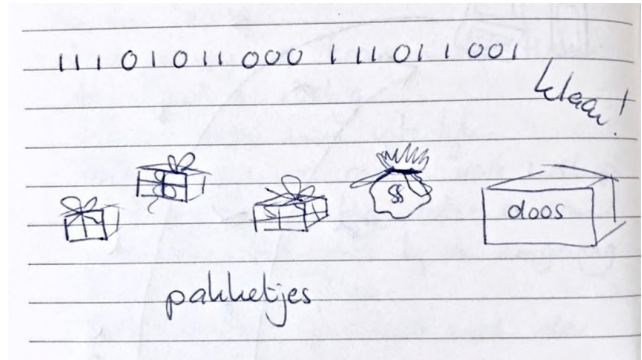 111 01 011 000 111 011 001
klaar!
$$
doos
pakketjes